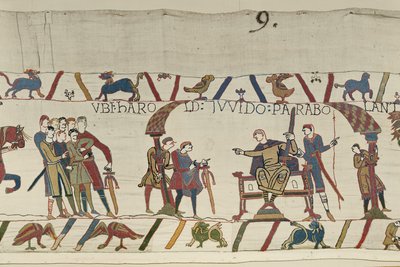 9.
VBI:hAROLD:⁊VVIDO:PARABOLANT